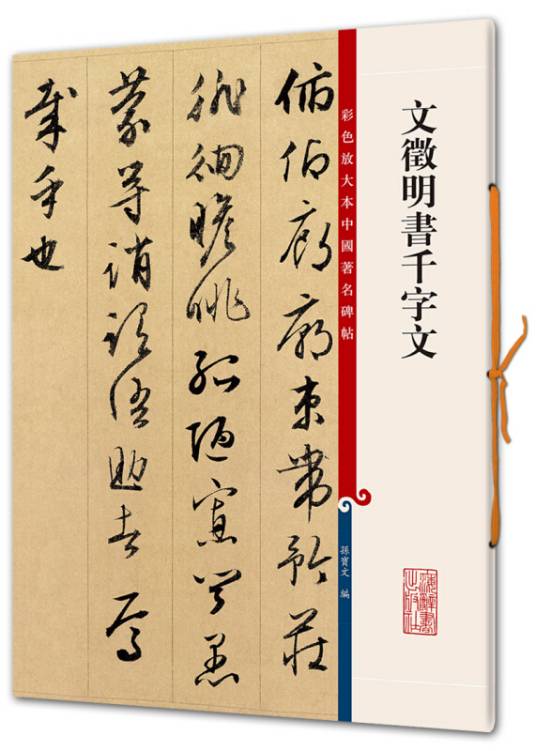 文徵明書千字文
彩色放大本中國著名碑帖
孫寶文 編
上海辭書
出版社
俯仰廊廟束帶矜莊
徘徊瞻眺孤陋寡聞愚
蒙等誚謂語助者焉
哉乎也